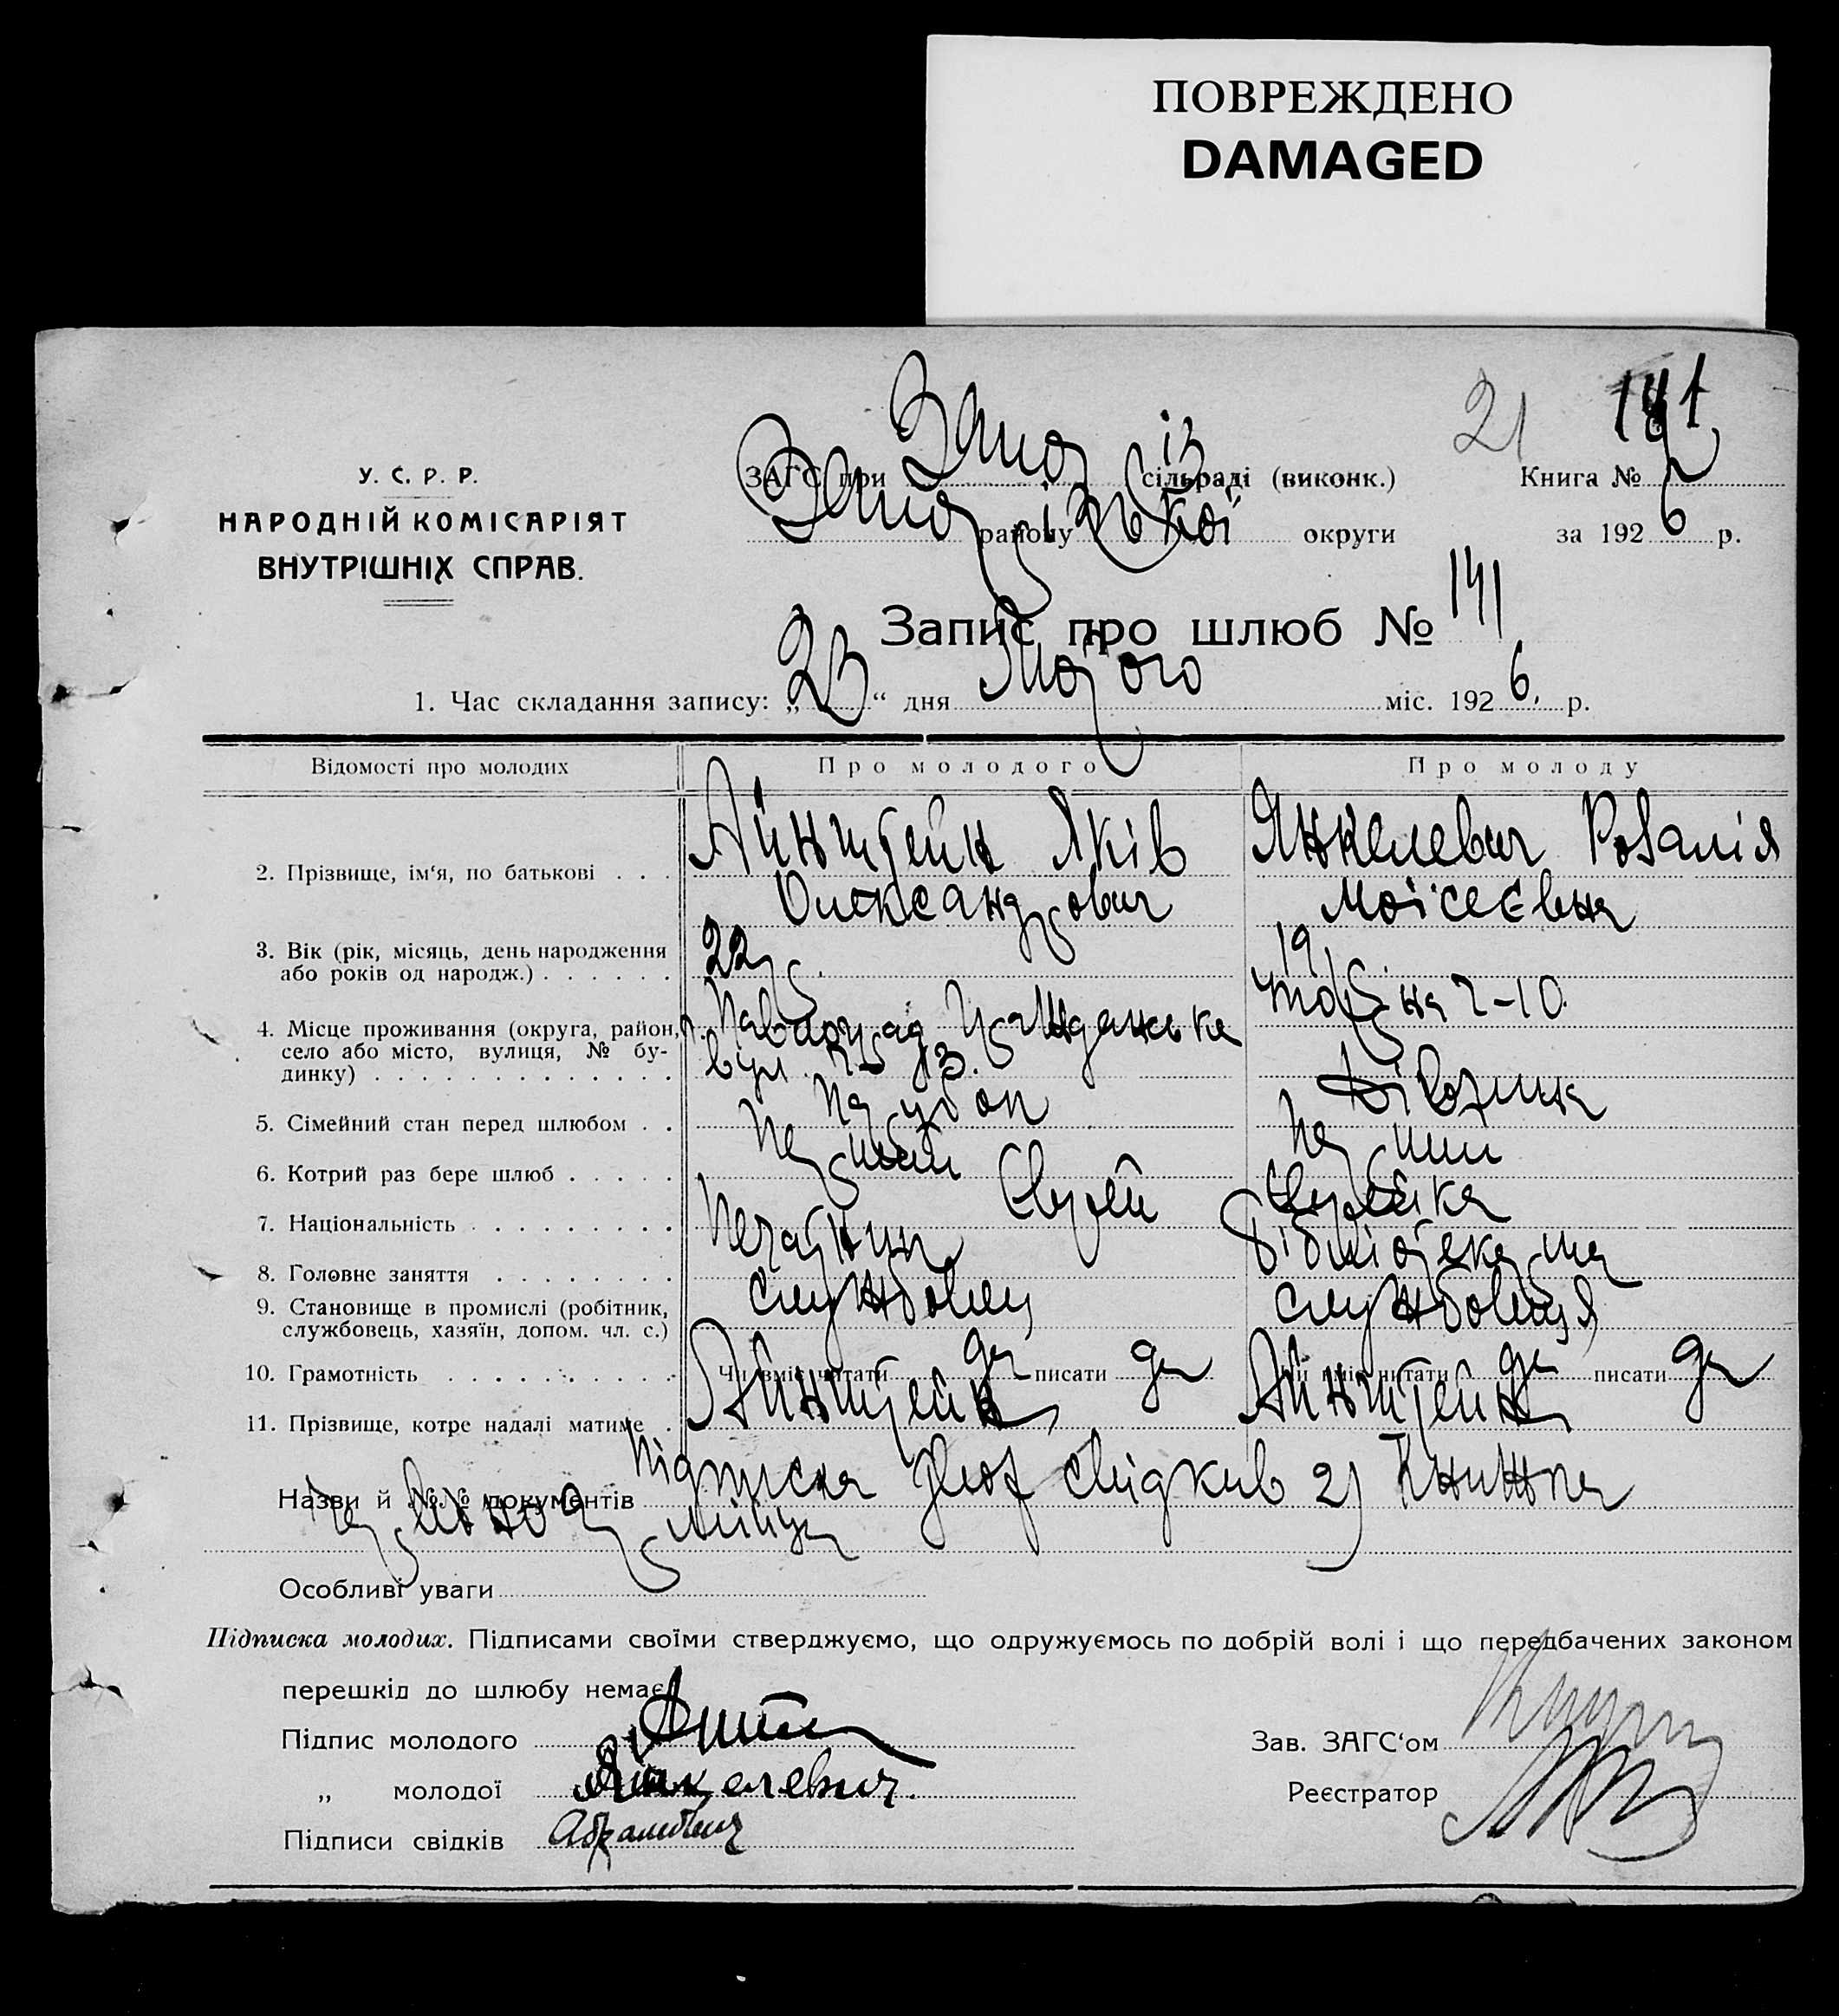 ПОВРЕЖДЕНО
DAMAGED
21 141
У. С. Р. Р.
НАРОДНІЙ КОМІСАРІЯТ
ВНУТРІШНІХ СПРАВ.
ЗАГС при Запоріз сільраді (виконк.) Книга № 2
Запорізької району округи за 1926 р.
Запис про шлюб № 141
1. Час складання запису: „23“ дня Лютого міс. 1926. р.
Відомості про молодих Про молодого Про молоду
2. Прізвище, ім‘я, по батькові . . . Айнштейн Яків Янкелевич Розалія
Олександрович Моісеєвна
3. Вік (рік, місяць, день народження 22 р. 19 р.
або років од народж.) . . . . . .
4. Місце проживання (округа, район, Павлоград Гражданська 7-10.
село або місто, вулиця, № бу- вул. 13.
динку) . . . . . . . . . . . . .
5. Сімейний стан перед шлюбом . . Парубок Дівчина
6. Котрий раз бере шлюб . . . . . Перший Перший
7. Національність . . . . . . . . . Еврей Еврейка
8. Головне заняття . . . . . . . . Печатник Бібліотекарша
9. Становище в промислі (робітник, службовець службовиця
службовець, хазяїн, допом. чл. с.)
10. Грамотність . . . . . . . . . . Чи вміє читати да писати да Чи вміє читати да писати да
11. Прізвище, котре надалі матиме . Айнштейн Айнштейн
Назви й №№ документів Підписка двох свідків 2) Книжка
Особливі уваги
Підписка молодих. Підписами своїми стверджуємо, що одружуємось по добрій волі і що передбачених законом
перешкід до шлюбу немає.
Підпис молодого Зав. ЗАГС‘ом
„ молодої Янкелевич. Реєстратор
Підписи свідків